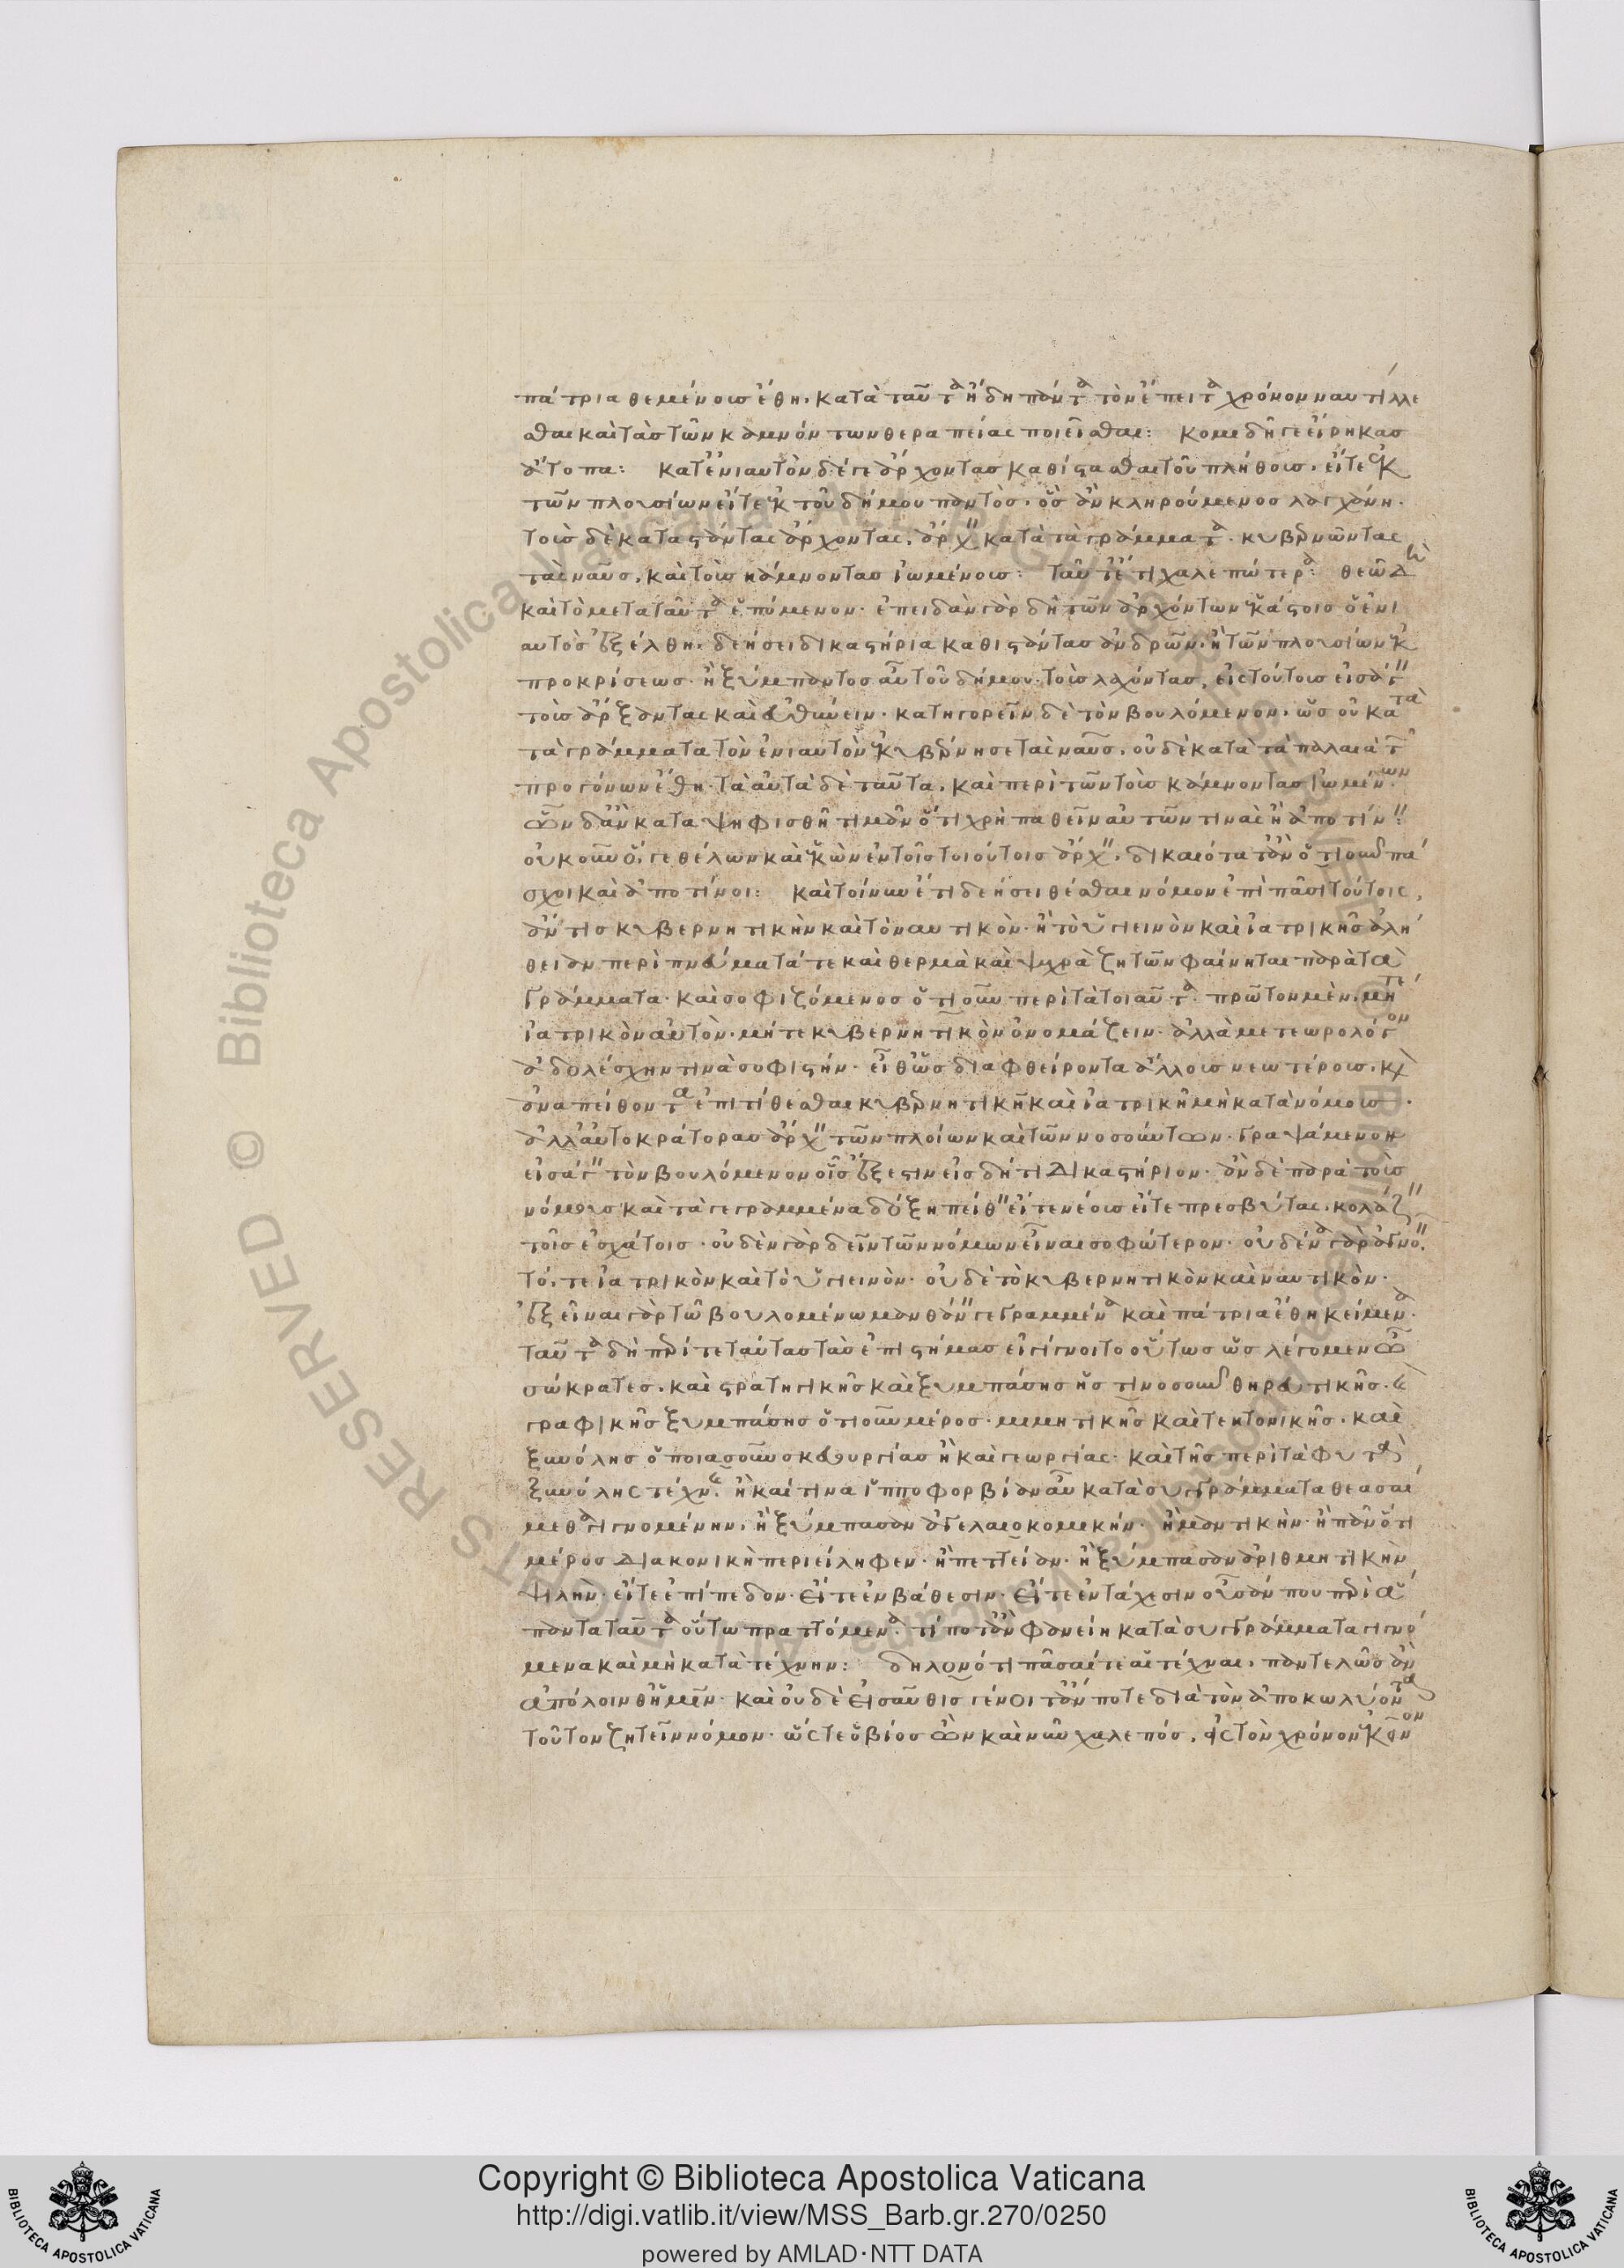 πάτρια θεμένους ἔθη, κατὰ ταῦτα ἤδη πάντα τὸν ἔπειτα χρόνον ναυτίλλε
σθαι καὶ τὰς τῶν καμνόντων θεραπείας ποιεῖσθαι: κομιδῆ γε εἴρηκας
ἄτοπα: κατ' ἐνιαυτὸν δέ γε ἄρχοντας καθίστασθαι τοῦ πλήθους, εἴτε ἐκ
τῶν πλουσίων εἴτε ἐκ τοῦ δήμου παντός, ὃς ἂν κληρούμενος λαγχάνη.
τοὺς δὲ καταστάντας ἄρχοντας, ἄρχειν κατὰ τὰ γράμματα. κυβερνῶντας
τὰς ναῦς, καὶ τοὺς κάμνοντας ἰωμένους: ταῦτ' ἔτι χαλεπώτερα: θεῶ δὴ
καὶ τὸ μετὰ ταῦτα ἑπόμενον. ἐπειδὰν γὰρ δὴ τῶν ἀρχόντων ἑκάστοις ὁ ἐνι
αυτὸς ἐξέλθη, δεήσει δικαστήρια καθίσταντας ἀνδρῶν, ἢ τῶν πλουσίων ἐκ
προκρίσεως. ἢ ξύμπαντος αὖ τοῦ δήμου τοὺς λαχόντας, εἰς τούτους εἰσάγειν
τοὺς ἄρξαντας καὶ εὐθύνειν. κατηγορεῖν δὲ τὸν βουλόμενον, ὡς οὐ κατὰ
τὰ γράμματα τὸν ἐνιαυτὸν ἐκυβέρνησε τὰς ναῦς, οὐδὲ κατὰ τὰ παλαιὰ τῶν
προγόνων ἔθη. τὰ αὐτὰ δὲ ταῦτα, καὶ περὶ τῶν τοὺς κάμνοντας ἰωμένων.
ὧν δ' ἂν καταψηφισθῆ τιμᾶν ὅ τι χρὴ παθεῖν αὐτῶν τινὰς ἢ ἀποτίνειν:
οὐκοῦν ὅ, γε θέλων καὶ ἑκὼν ἐν τοῖς τοιούτοις ἄρχειν, δικαιότατ' ἂν ὁτιοῦν πά
σχοι καὶ ἀποτίνοι: καὶ τοίνυν ἔτι δεήσει θέσθαι νόμον ἐπὶ πᾶσι τούτοις,
ἄν τις κυβερνητικὴν καὶ τὸ ναυτικὸν. ἢ τὸ ὑγιεινὸν καὶ ἰατρικῆς ἀλή
θειαν περὶ πνεύματά τε καὶ θερμὰ καὶ ψυχρὰ ζητῶν φαίνηται παρὰ τὰ
γράμματα. καὶ σοφιζόμενος ὁτιοῦν περὶ τὰ τοιαῦτα. πρῶτον μὲν, μήτε
ἰατρικὸν αὐτὸν, μήτε κυβερνητικὸν ὀνομάζειν. ἀλλὰ μετεωρολόγον
ἀδολέσχην τινὰ σοφιστήν. εἶθ' ὡς διαφθείροντα ἄλλους νεωτέρους, καὶ
ἀναπείθοντα ἐπιτίθεσθαι κυβερνητικῆ καὶ ἰατρικῆ μὴ κατὰ νόμους.
ἀλλ' αὐτοκράτορας ἄρχειν τῶν πλοίων καὶ τῶν νοσούντων. γραψάμενον
εἰσάγειν τὸν βουλόμενον οἷς ἔξεστιν εἰς δή τι δικαστήριον. ἂν δὲ παρὰ τοὺς
νόμους καὶ τὰ γεγραμμένα δόξη πείθειν εἴτε νέους εἴτε πρεσβύτας, κολάζειν
τοῖς ἐσχάτοις. οὐδὲν γὰρ δεῖν τῶν νόμων εἶναι σοφώτερον. οὐδένα γὰρ ἀγνοεῖν.
τό, τε ἰατρικὸν καὶ τὸ ὑγιεινὸν. οὐδὲ τὸ κυβερνητικὸν καὶ ναυτικὸν.
ἐξεῖναι γὰρ τῶ βουλομένω μανθάνειν γεγραμμένα καὶ πάτρια ἔθη κείμενα.
ταῦτα δὴ περί τε ταύτας τὰς ἐπιστήμας εἰ γίγνοιτο οὕτως ὡς λέγομεν ὦ
σώκρατες, καὶ στρατηγικῆς καὶ ξυμπάσης ἧστινοσοῦν θηρευτικῆς. καὶ
γραφικῆς ξυμπάσης ὁτιοῦν μέρος. μιμητικῆς καὶ τεκτονικῆς, καὶ
ξυνόλης ὁποιασοῦν σκευουργίας ἢ καὶ γεωργίας. καὶ τῆς περὶ τὰ φυτὰ
ξυνόλης τέχνης. ἢ καί τινα ἱπποφορβίαν αὖ κατὰ συγγράμματα θεασαί
μεθα γιγνομένην, ἢ ξύμπασαν ἀγελαιοκομικήν. ἢ μαντικὴν. ἢ πᾶν ὅτι
μέρος διακονικὴ περιείληφεν. ἢ πεττείαν. ἢ ξύμπασαν ἀριθμητικὴν
ψιλὴν. εἴτε ἐπίπεδον. εἴτε ἐν βάθεσιν. εἴτε ἐν τάχεσιν οὖσάν που περὶ ἅ
παντα ταῦτα οὕτω πραττόμενα. τί ποτ' ἂν φανείη κατὰ συγγράμματα γιγνό
μενα καὶ μὴ κατὰ τέχνην: δῆλον ὅτι πᾶσαί τε αἱ τέχναι, παντελῶς ἂν
ἀπόλοινθ' ἡμῖν. καὶ οὐδὲ εἰσαῦθις γένοιτ' ἄν ποτε διὰ τὸν ἀποκωλύοντα
τοῦτον ζητεῖν νόμον. ὥστε ὁ βίος ὢν καὶ νῦν χαλεπός, εἰς τὸν χρόνον ἐκεῖνον